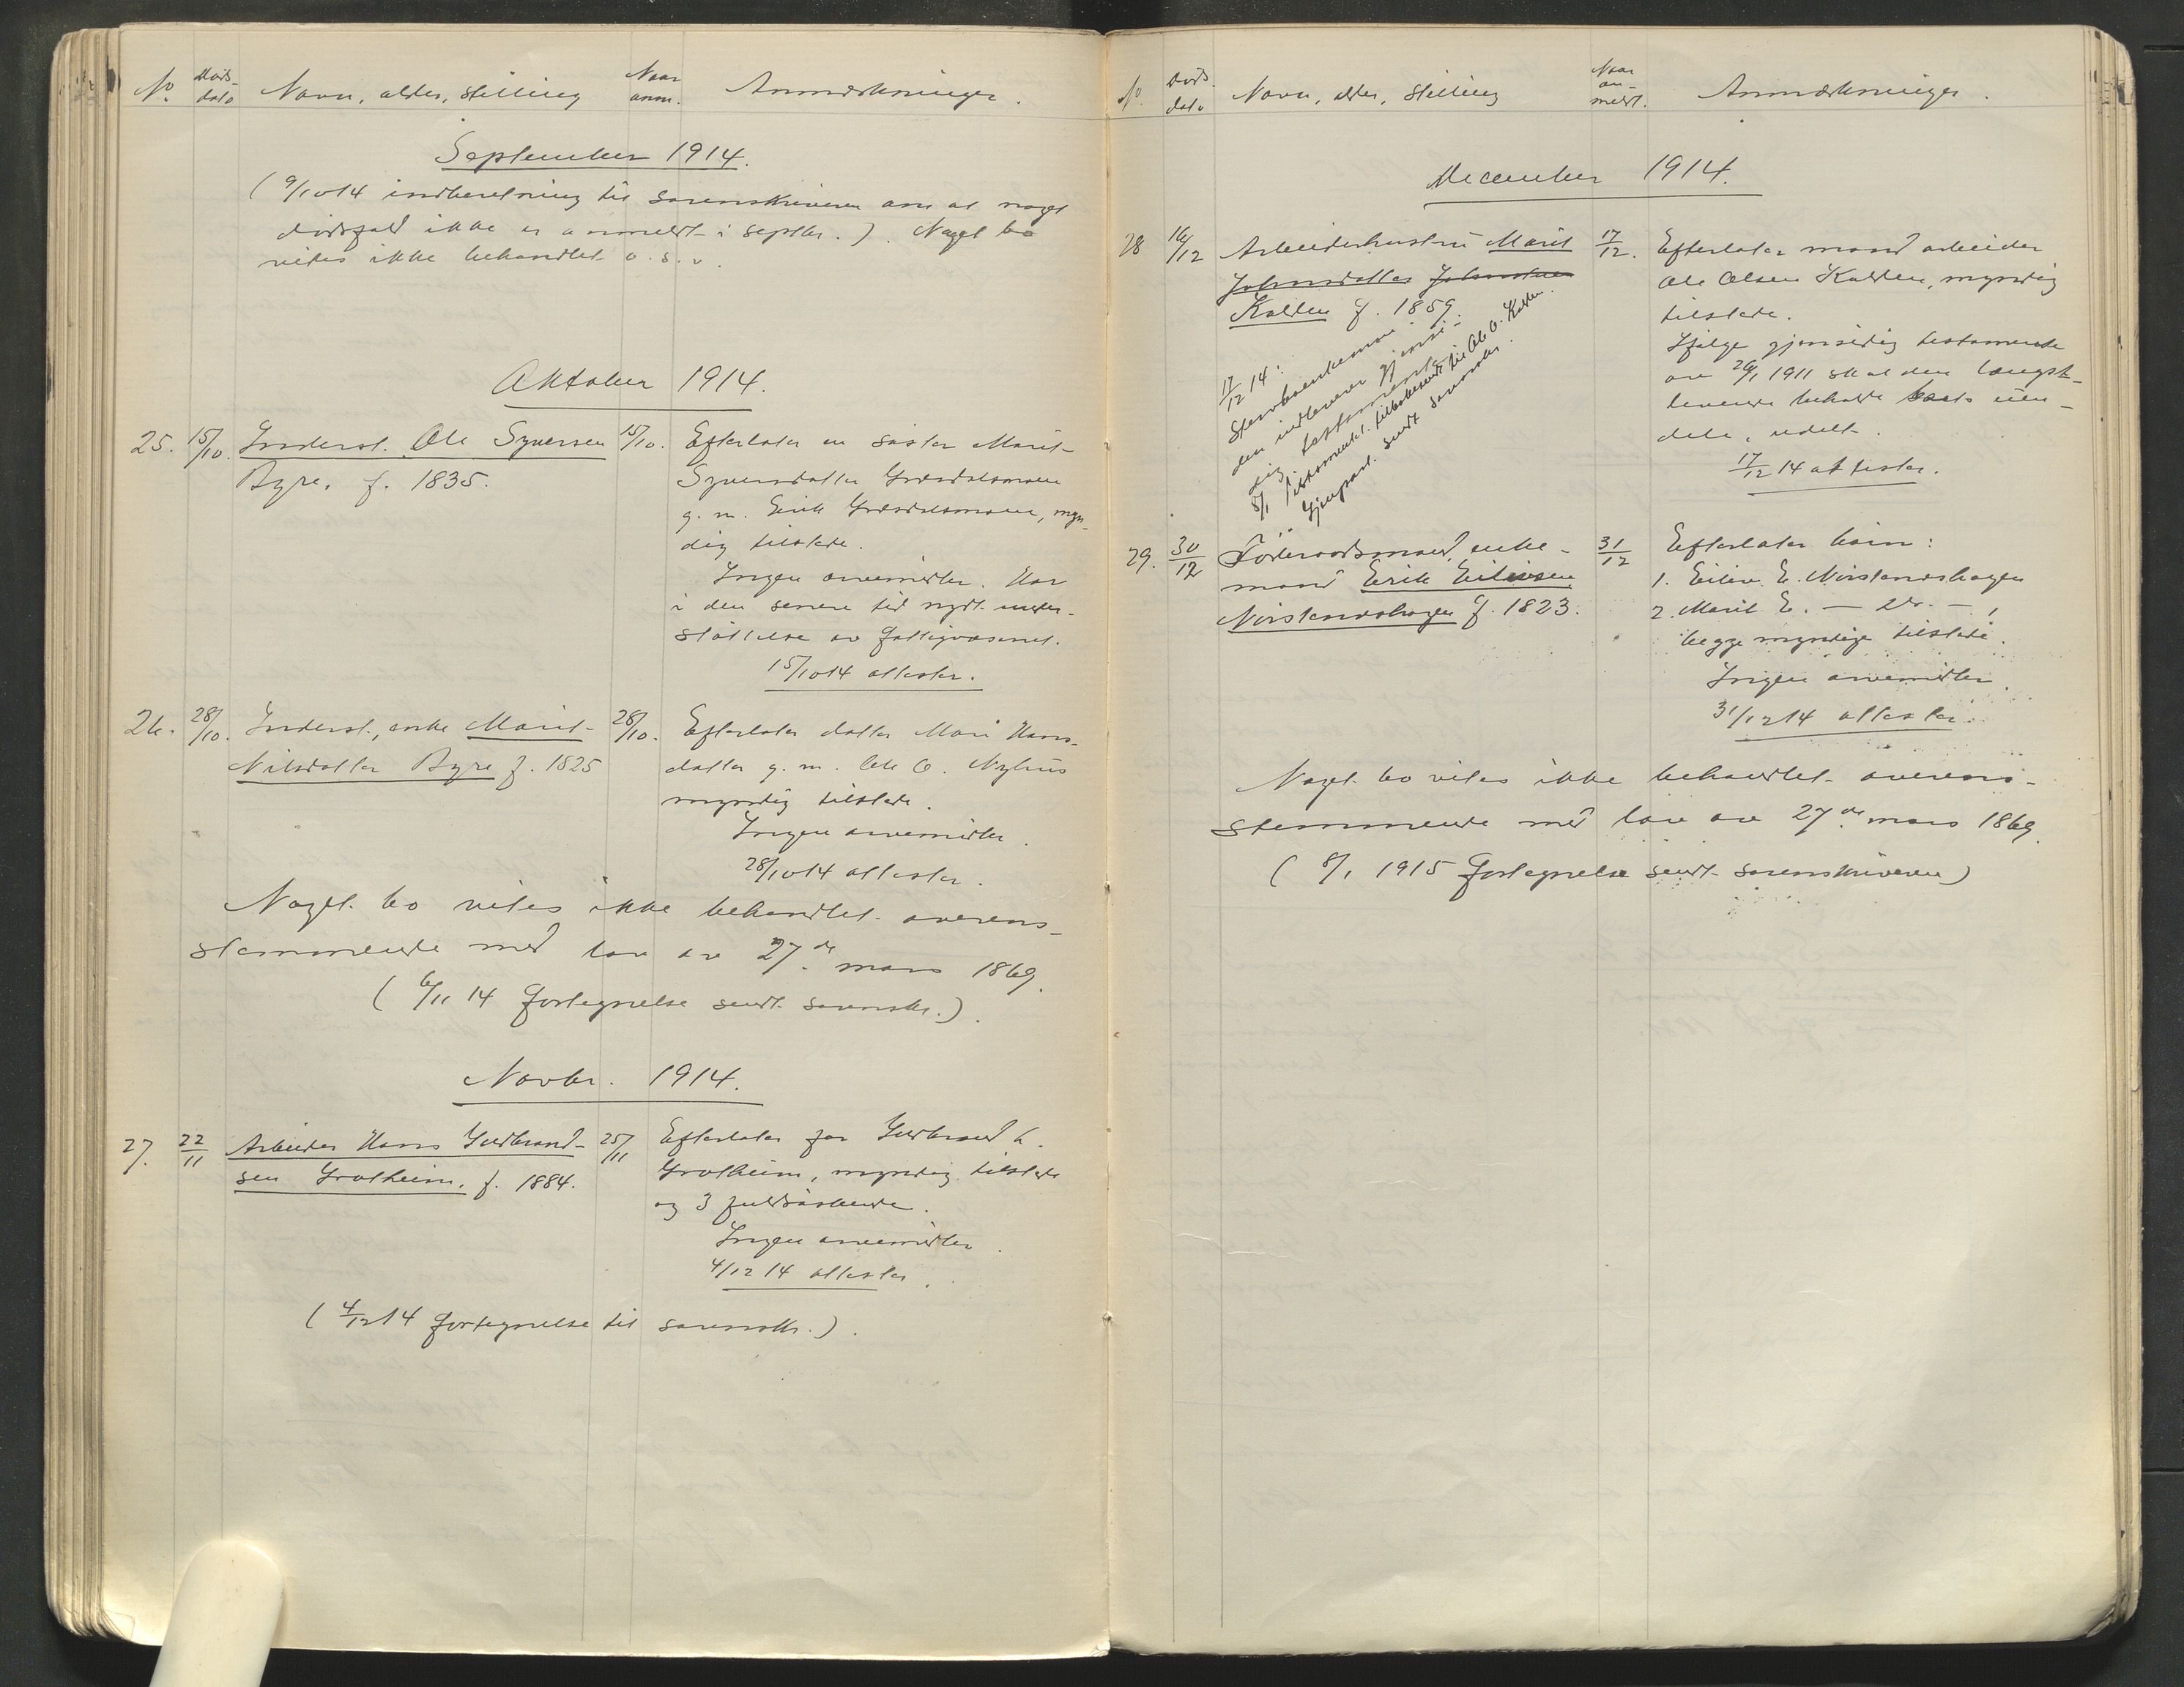 No. Døds- dato Navn, alder, stilling Naar anm. Anmærkninger.
September 1914.
( 9/10 14 indberetning til sorenskriveren om at noget
dødsfald ikke er anmeldt i septbr. ). Noget bo
vites ikke behandlet o.s.v.
Oktober 1914.
25. 15/10. Inderst. Ole Syversen 15/10. Efterlater en søster Marit
Byre. f. 1835. Syversdatter
g. m. Erik myn-
dig tilstede.
Ingen arvemidler. Har
i den senere tid nydt under-
støttelse av fattigvæsenet.
15/10 14 attester.
26. 28/10. Inderst., enke Marit 28/10. Efterlater datter Mari Hans-
Nilsdatter Byre f. 1825 datter g. m. Ole O. Nyhus
myndig tilstede.
Ingen arvemidler.
28/10 14 attester.
Noget bo vites ikke behandlet overens-
stemmende med lov av 27de mars 1869.
( 6/11 14 fortegnelse sendt sorenskr. ).
Novbr. 1914.
27. 22/11 Arbeider Hans Gulbrand- 25/11 Efterlater far Gulbrand
sen Grøtheim. f. 1884. Grøtheim, myndig tilstede
og 3 fuldsøskende.
Ingen arvemidler.
4/12 14 attester.
( 4/12 14 fortegnelse til sorenskr. ).
No. Døds- dato Navn, alder, stilling Naar an- meldt. Anmærkninger.
December 1914.
28 16/12 Arbeiderhustru Marit 17/12. Efterlater mand arbeider
Johnsdatter Ole Olsen Kolden, myndig
Kolden f. 1859. tilstede.
Ifølge gjensidig testamente
av 26/1 1911 skal den længst-
levende beholde boets eien-
dele, udelt.
17/12 14 attester.
17/12 14:
Stervboenkeman-
den indleverer gjensi-
dig testamente.
8/1 Testamentet tilbakesendt til Ole O. Kolden.
Gjenpart sendt sorenskr.
29. 30/12 Føderaadsmand, enke- 31/12 Efterlater børn:
mand Erik Eilivsen 1. Eiliv E. Nørstenshagen
f. 1823. 2. Marit E. — Do. —,
begge myndige tilstede.
Ingen arvemidler.
31/12 14 attester.
Noget bo vites ikke behandlet overens-
stemmende med lov av 27de mars 1869.
( 8/1 1915 fortegnelse sendt sorenskriveren)